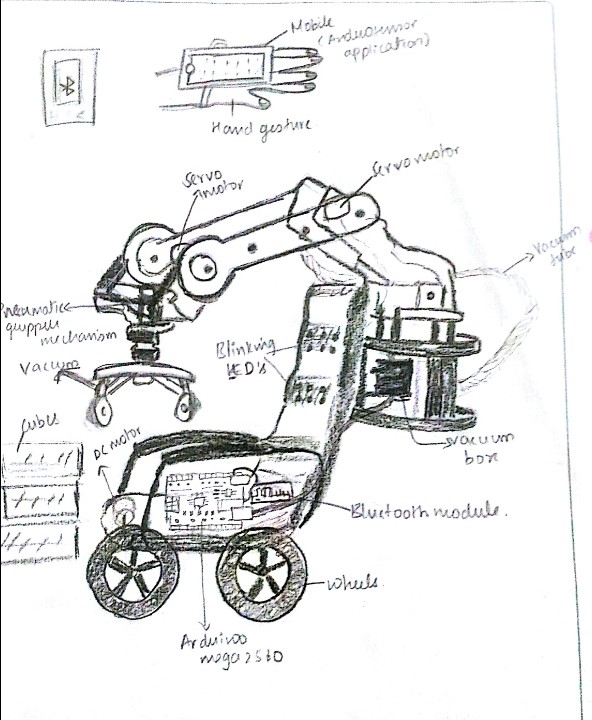 Mobile
(Andruosensor
application)
Hand gesture
Servo
motor
Servo motor
Vacuum
tube
Pneumatic
gripper
mechanism
Vacuum
Blinking
LED's
cubes
DC motor
Vacuum
box
Bluetooth module.
wheels.
Arduinoo
mega 2560